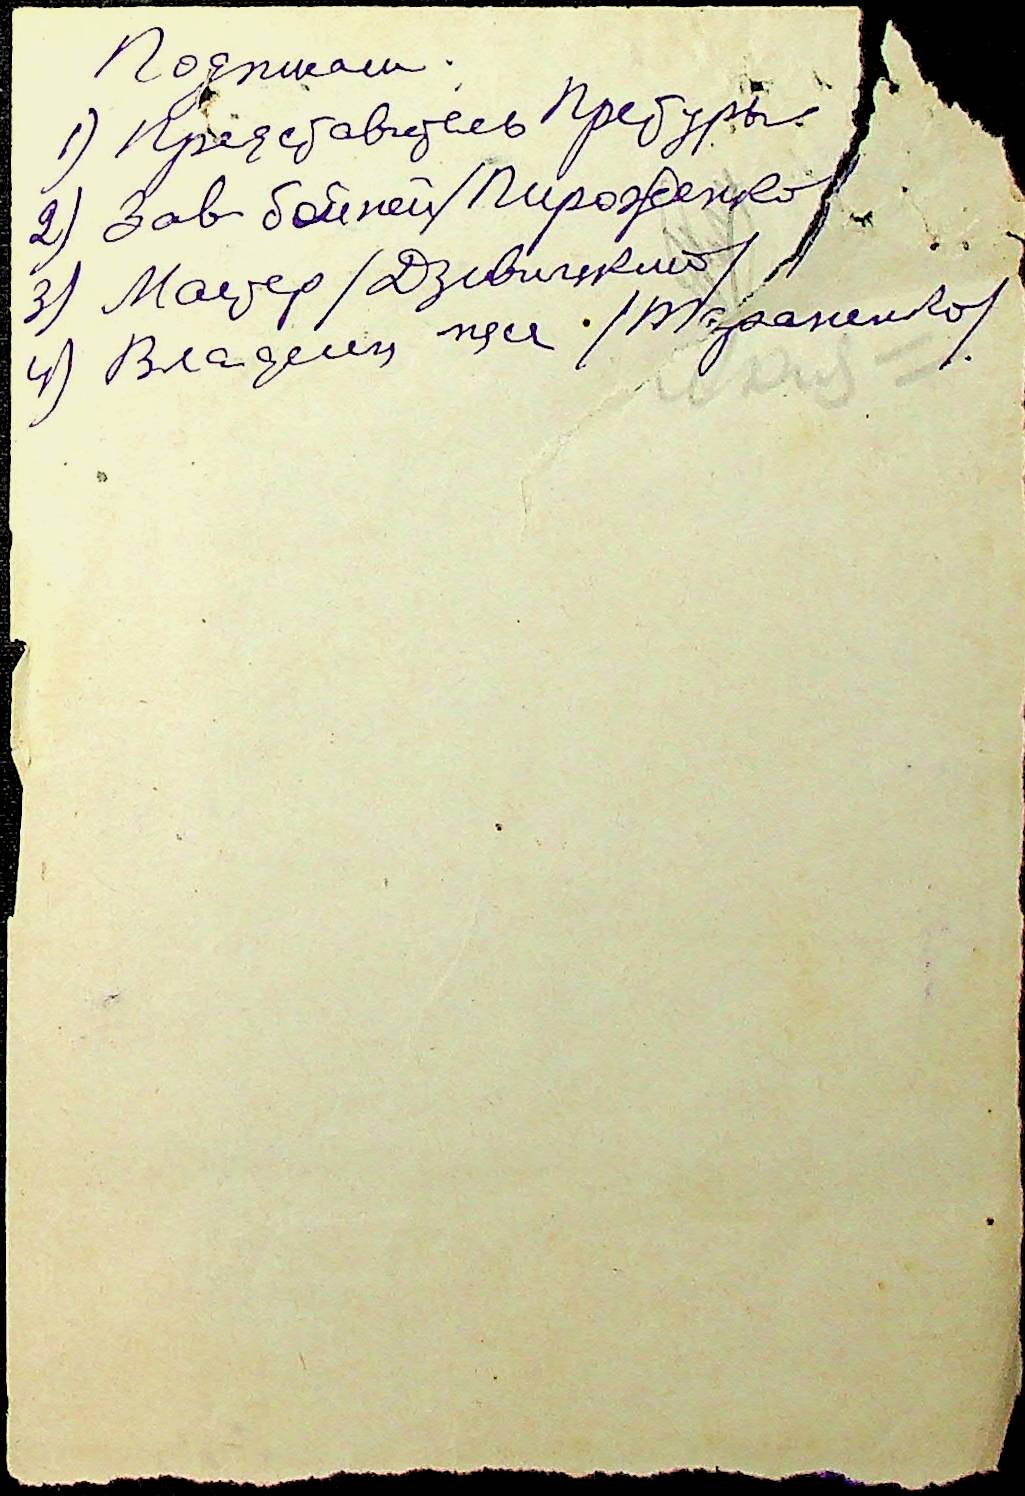 Подписали.
1) Представитель Претуры.
2) Зав бойней /Пирожденко/
3) Мастер /Дзивицкий/
4) Владелец /Тараненко/.